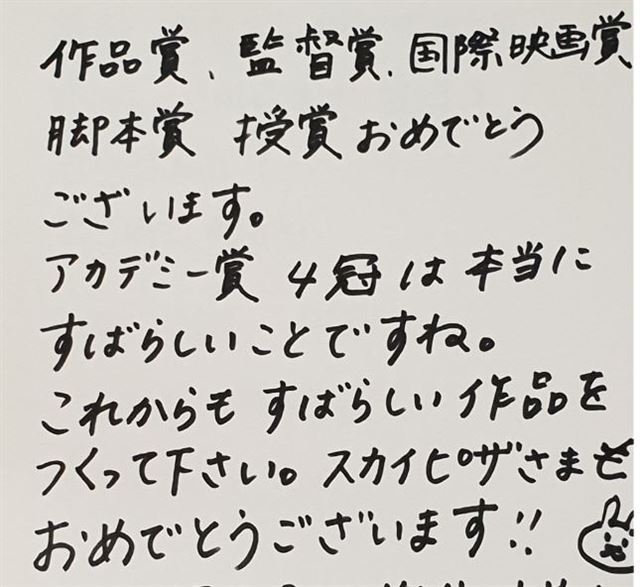 作品賞、監督賞、国際映画賞
脚本賞 授賞おめでとう
ございます。
アカデミー賞 4冠は本当に
すばらしいことですね。
これからもすばらしい作品を
つくって下さい。スカイピザさまも
おめでとうございます!!